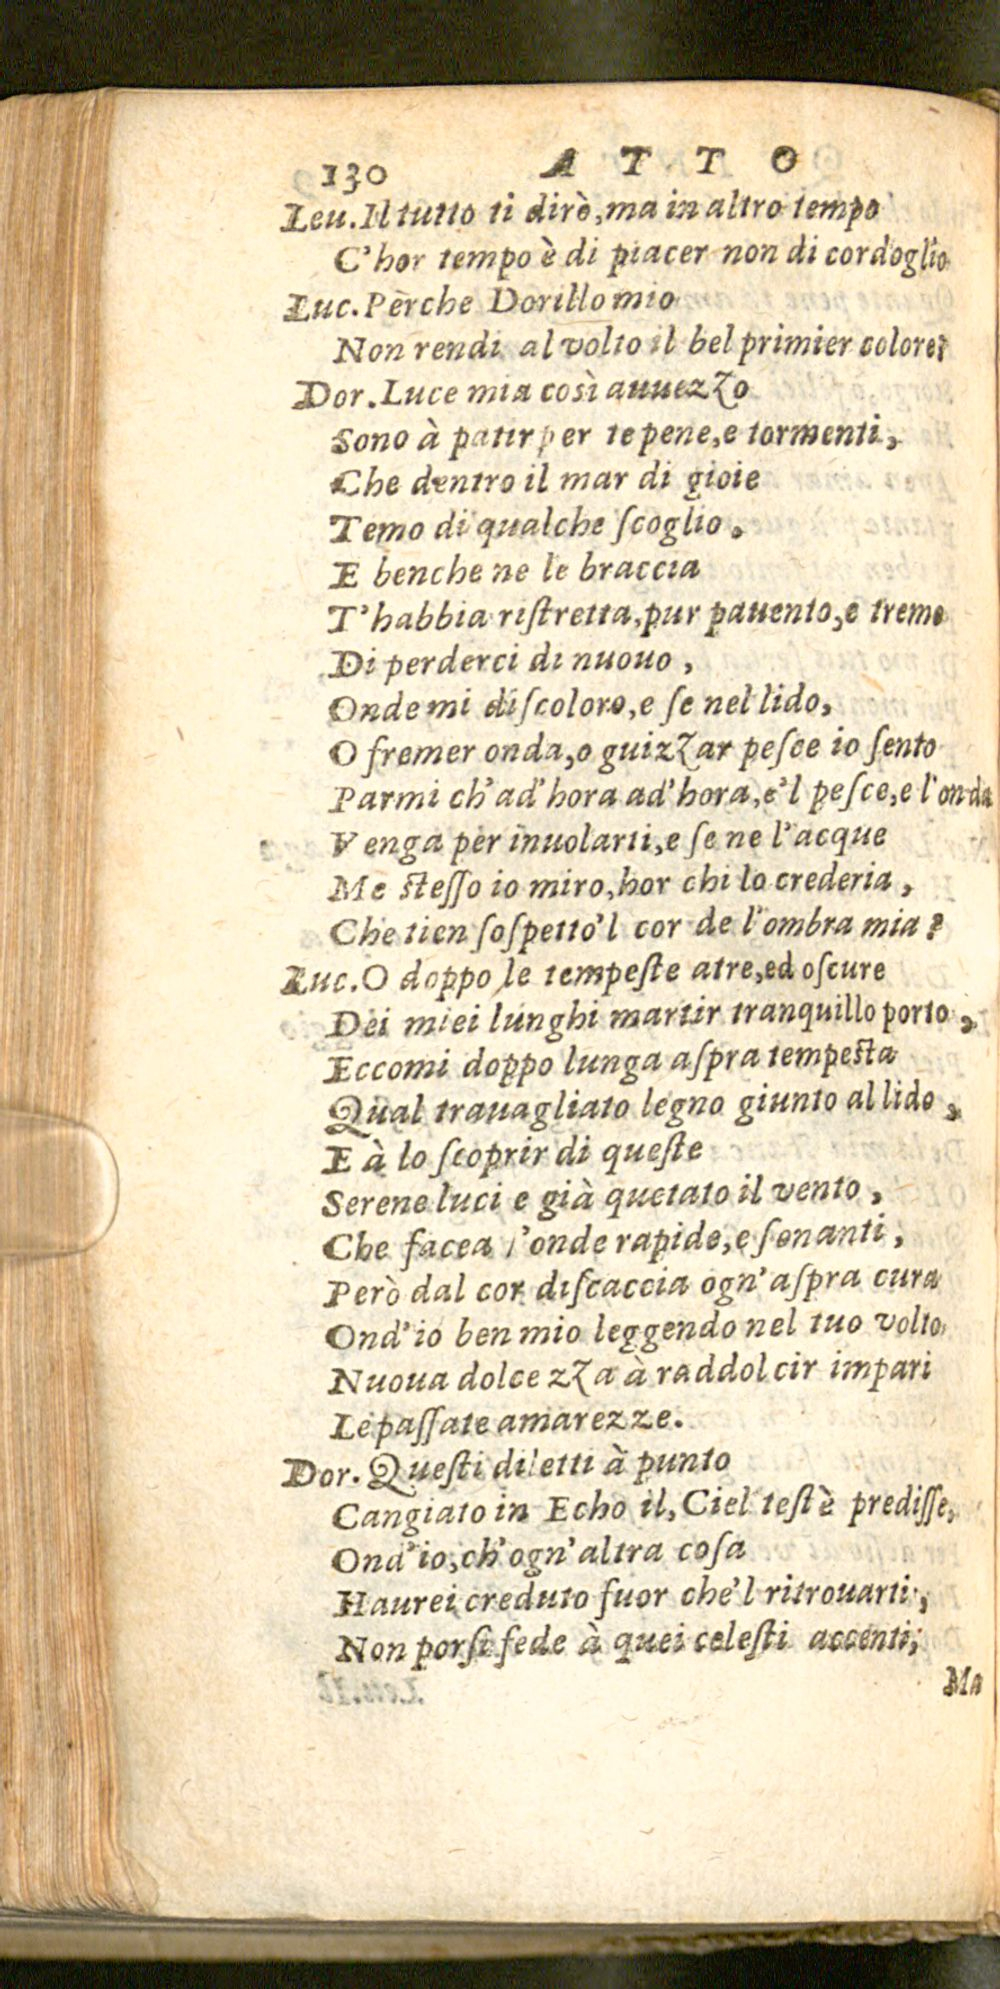 130 ATTO
Leu. Il tutto ti dirò, ma in altro tempo
C'hor tempo è di piacer non di cordoglio
Luc. Perche Dorillo mio
Non rendi al volto il bel primier colore?
Dor. Luce mia così auuezzo
Sono à patir per te pene, e tormenti,
Che dentro il mar di gioie
Temo di qualche ſcoglio.
E benche ne le braccia
T'habbia riſtretta, pur pauento, e tremo
Di perderci di nuouo,
Onde mi diſcoloro, e ſe nel lido,
O fremer onda, o guizzar peſce io ſento
Parmi ch'ad'hora ad'hora, e'l peſce, e l'onda
Venga per inuolarti, e ſe ne l'acque
Me ſteſſo io miro, hor chi lo crederia,
Che tien ſoſpetto'l cor de l'ombra mia?
Luc. O doppo le tempeſte atre, ed oſcure
Dei miei lunghi martir tranquillo porto,
Eccomi doppo lunga aſpra tempeſta
Qual trauagliato legno giunto al lido,
E à lo ſcoprir di queſte
Serene luci e già quetato il vento,
Che facea l'onde rapide, e ſonanti,
Però dal cor diſcaccia ogn'aſpra cura
Ond'io ben mio leggendo nel tuo volto
Nuoua dolcezza à raddolcir impari
Le paſſate amarezze.
Dor. Queſti diletti à punto
Cangiato in Echo il, Ciel teſtè prediſſe,
Ond'io, ch'ogn'altra coſa
Haurei creduto fuor che'l ritrouarti,
Non porſi fede à quei celeſti accenti;
Ma